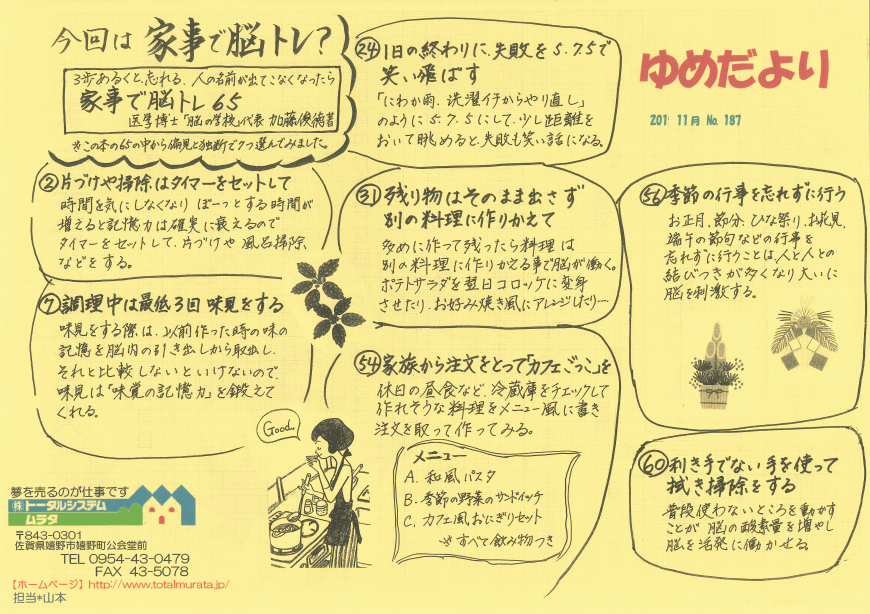 今回は 家事で脳トレ?
3歩あるくと、忘れる、人の名前が出てこなくなったら
家事で脳トレ 65
医学博士「脳の学校」代表 加藤俊徳著
※この本の65の中から偏見と独断で7つ選んでみました。
②片づけや掃除はタイマーをセットして
時間を気にしなくなり ぼーっとする時間が
増えると記憶力は確実に衰えるので
タイマーをセットして、片づけや 風呂掃除
などをする。
⑦調理中は最低3回 味見をする
味見をする際は、以前作った時の味の
記憶を脳内の引き出しから取出し、
それと比較しないといけないので、
味見は「味覚の記憶力」を鍛えて
くれる。
㉔1日の終わりに、失敗を5.7.5で
笑い飛ばす
「にわか雨、洗濯イチからやり直し」
のように5.7.5にして、少し距離を
おいて眺めると、失敗も笑い話になる。
㉛残り物はそのまま出さず
別の料理に作りかえて
多めに作って残ったら料理は
別の料理に作りかえる事で脳が働く。
ポテトサラダを翌日コロッケに変身
させたり、お好み焼き風にアレンジしたり…
㊴家族から注文をとって「カフェごっこ」を
休日の昼食など、冷蔵庫をチェックして
作れそうな料理をメニュー風に書き
注文を取って作ってみる。
メニュー
A. 和風パスタ
B. 季節の野菜のサンドイッチ
C. カフェ風おにぎりセット
※すべて飲み物つき
Good.
ゆめだより
11月 No. 187
56 季節の行事を忘れずに行う
お正月、節分、ひな祭り、お花見、
端午の節句などの行事を
忘れずに行うことは、人と人との
結びつきが多くなり大いに
脳を刺激する。
60 利き手でない手を使って
拭き掃除をする
普段使わないところを動かす
ことが 脳の酸素量を増やし
脳を活発に働かせる。
夢を売るのが仕事です
㈱トータルシステム
ムラタ
〒843-0301
佐賀県嬉野市嬉野町公会堂前
TEL 0954-43-0479
FAX 43-5078
【ホームページ】http://www.totalmurata.jp/
担当*山本